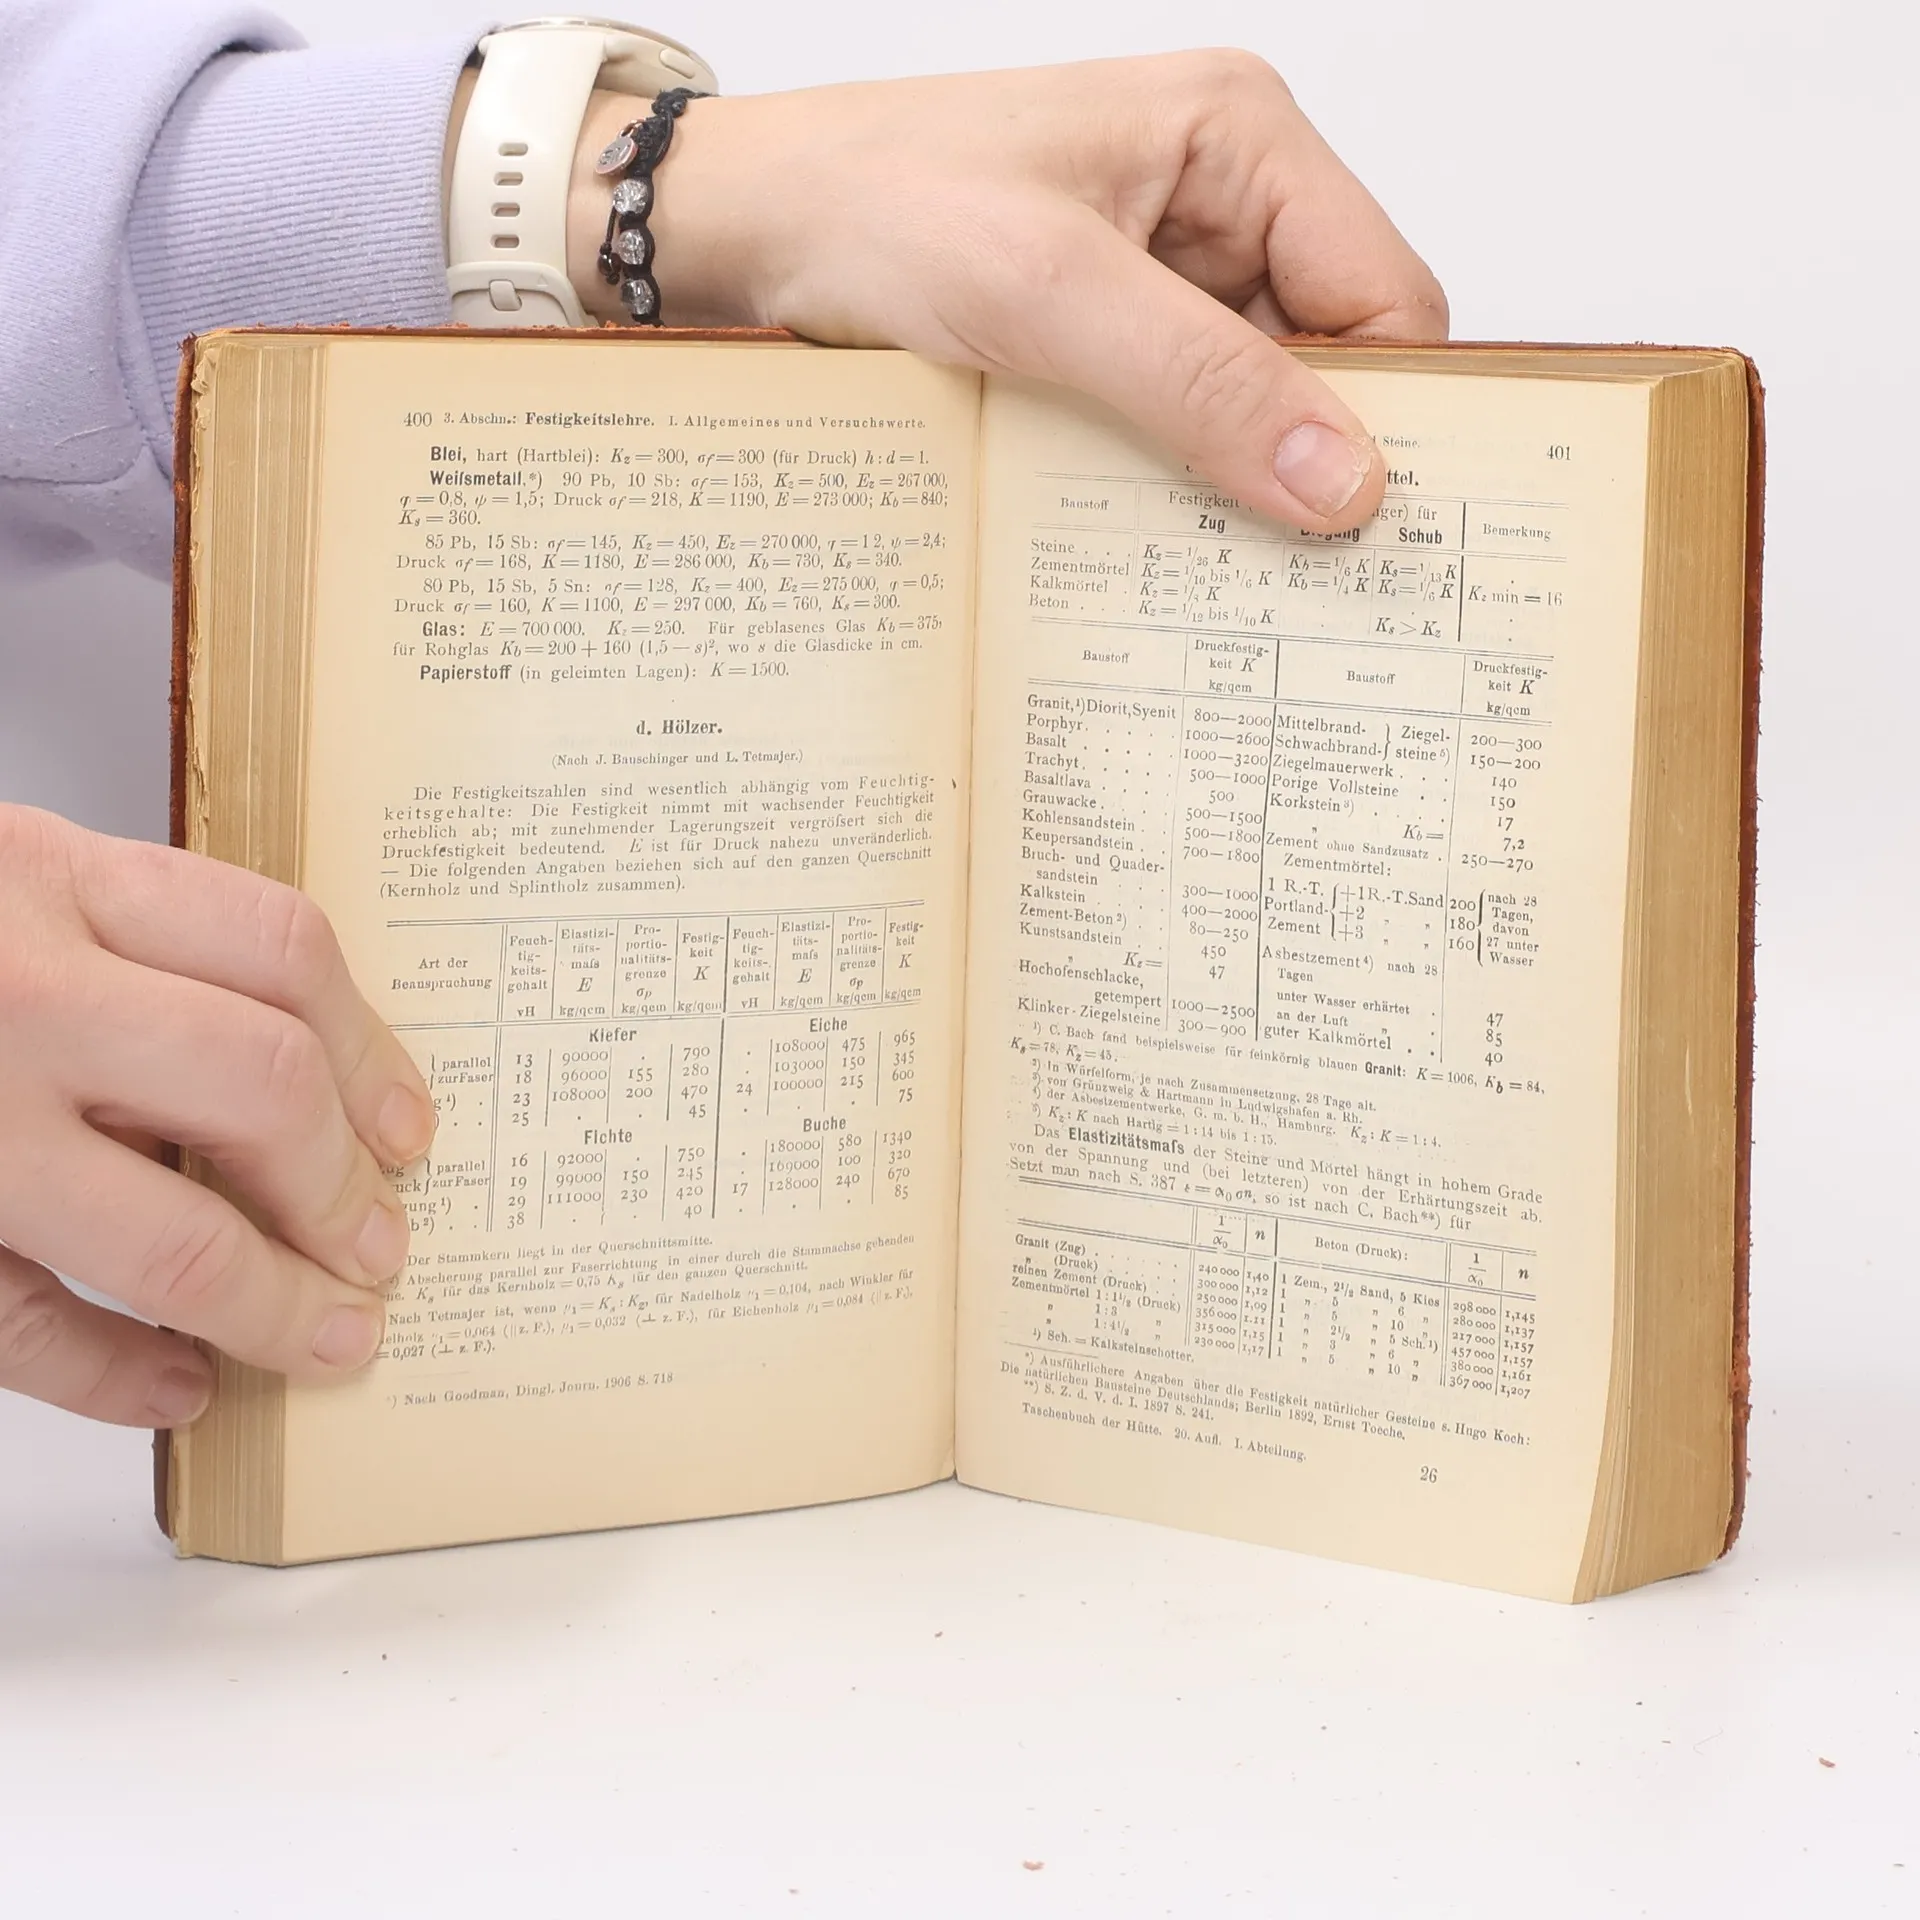 400 3. Abschn.: Festigkeitslehre. I. Allgemeines und Versuchswerte.
Blei, hart (Hartblei): Kz = 300, σf = 300 (für Druck) h : d = 1.
Weifsmetall.*) 90 Pb, 10 Sb: σf = 153, Kz = 500, Ez = 267 000,
φ = 0,8, ψ = 1,5; Druck σf = 218, K = 1190, E = 273 000; Kb = 840;
Ks = 360.
85 Pb, 15 Sb: σf = 145, Kz = 450, Ez = 270 000, ψ = 2,4;
Druck σf = 168, K = 1180, E = 286 000, Kb = 730, Ks = 340.
80 Pb, 15 Sb, 5 Sn: σf = 128, Kz = 400, Ez = 275 000, φ = 0,5;
Druck σf = 160, K = 1100, E = 297 000, Kb = 760, Ks = 300.
Glas: E = 700 000. Kz = 250. Für geblasenes Glas Kb = 375,
für Rohglas Kb = 200 + 160 (1,5 — s)², wo s die Glasdicke in cm.
Papierstoff (in geleimten Lagen): K = 1500.
d. Hölzer.
(Nach J. Bauschinger und L. Tetmajer.)
Die Festigkeitszahlen sind wesentlich abhängig vom Feuchtig-
keitsgehalte: Die Festigkeit nimmt mit wachsender Feuchtigkeit
erheblich ab; mit zunehmender Lagerungszeit vergröfsert sich die
Druckfestigkeit bedeutend. E ist für Druck nahezu unveränderlich.
— Die folgenden Angaben beziehen sich auf den ganzen Querschnitt
(Kernholz und Splintholz zusammen).
Art der Beanspruchung | Feuch-tig-keits-gehalt vH | Elastizi-täts-mafs E kg/qcm | Pro-portio-nalitäts-grenze σp kg/qcm | Festig-keit K kg/qcm | Feuch-tig-keits-gehalt vH | Elastizi-täts-mafs E kg/qcm | Pro-portio-nalitäts-grenze σp kg/qcm | Festig-keit K kg/qcm
Kiefer Eiche
parallel 13 90000 . 790 . 108000 475 965
zur Faser 18 96000 155 280 . 103000 150 345
g ¹) . 23 108000 200 470 24 100000 215 600
. . 25 . . 45 . . . 75
Fichte Buche
parallel 16 92000 . 750 . 180000 580 1340
uck zur Faser 19 99000 150 245 . 169000 100 320
ung ¹) . 29 111000 230 420 17 128000 240 670
b ²) . . 38 . . 40 . . . 85
Der Stammkern liegt in der Querschnittsmitte.
²) Abscherung parallel zur Faserrichtung in einer durch die Stammachse gehenden
ne. Ks für das Kernholz = 0,75 Ks für den ganzen Querschnitt.
Nach Tetmajer ist, wenn μ1 = Ks : Kz, für Nadelholz μ1 = 0,104, nach Winkler für
elholz μ1 = 0,064 (|| z. F.), μ1 = 0,032 (⊥ z. F.), für Eichenholz μ1 = 0,084 (|| z. F.),
= 0,027 (⊥ z. F.).
*) Nach Goodman, Dingl. Journ. 1906 S. 718
Steine. 401
ttel.
Baustoff | Festigkeit nger) für | Bemerkung
Zug | Biegung | Schub
Steine . . . Kz = 1/26 K Kb = 1/6 K Ks = 1/13 K .
Zementmörtel Kz = 1/10 bis 1/6 K Kb = 1/4 K Ks = 1/6 K Kz min = 16
Kalkmörtel . Kz = 1/5 K . . .
Beton . . . Kz = 1/12 bis 1/10 K . Ks > Kz .
Baustoff | Druckfestig-keit K kg/qcm | Baustoff | Druckfestig-keit K kg/qcm
Granit,¹) Diorit, Syenit 800—2000 Mittelbrand- Ziegel- 200—300
Porphyr. . . . . 1000—2600 Schwachbrand- steine ⁵) 150—200
Basalt . . . . . 1000—3200 Ziegelmauerwerk . . . 140
Trachyt. . . . . 500—1000 Porige Vollsteine . . 150
Basaltlava . . . . 500 Korkstein ³) . . . . 17
Grauwacke . . . . 500—1500 „ Kb = 7,2
Kohlensandstein . . 500—1800 Zement ohne Sandzusatz . 250—270
Keupersandstein . . 700—1800 Zementmörtel:
Bruch- und Quader-
sandstein . . . 300—1000 1 R.-T. +1 R.-T. Sand 200 nach 28
Kalkstein . . . . 400—2000 Portland- +2 „ „ 180 Tagen, davon
Zement-Beton ²) . . 80—250 Zement +3 „ „ 160 27 unter Wasser
Kunstsandstein . . 450 Asbestzement ⁴) nach 28
„ Kz = 47 Tagen
Hochofenschlacke, unter Wasser erhärtet . 47
getempert 1000—2500 an der Luft „ . 85
Klinker-Ziegelsteine 300—900 guter Kalkmörtel . . 40
¹) C. Bach fand beispielsweise für feinkörnig blauen Granit: K = 1006, Kb = 84,
Ks = 78, Kz = 45.
²) In Würfelform, je nach Zusammensetzung, 28 Tage alt.
³) von Grünzweig & Hartmann in Ludwigshafen a. Rh.
⁴) der Asbestzementwerke, G. m. b. H., Hamburg. Kz : K = 1 : 4.
⁵) Kz : K nach Hartig = 1 : 14 bis 1 : 15.
Das Elastizitätsmafs der Steine und Mörtel hängt in hohem Grade
von der Spannung und (bei letzteren) von der Erhärtungszeit ab.
Setzt man nach S. 387 ε = α0 σn, so ist nach C. Bach**) für
1/α0 | n | Beton (Druck): | 1/α0 | n
Granit (Zug) . . . . . 240 000 1,40 1 Zem., 2½ Sand, 5 Kies 298 000 1,145
„ (Druck) . . . . . 300 000 1,12 1 „ 5 „ 6 „ 280 000 1,137
reinen Zement (Druck) . . 250 000 1,09 1 „ 5 „ 10 „ 217 000 1,157
Zementmörtel 1 : 1½ (Druck) 356 000 1.11 1 „ 2½ „ 5 Sch.¹) 457 000 1,157
„ 1 : 3 „ 315 000 1,15 1 „ 3 „ 6 „ 380 000 1,161
„ 1 : 4½ „ 230 000 1,17 1 „ 5 „ 10 „ 367 000 1,207
¹) Sch. = Kalksteinschotter.
*) Ausführlichere Angaben über die Festigkeit natürlicher Gesteine s. Hugo Koch:
Die natürlichen Bausteine Deutschlands; Berlin 1892, Ernst Toeche.
**) S. Z. d. V. d. I. 1897 S. 241.
Taschenbuch der Hütte. 20. Aufl. I. Abteilung.
26